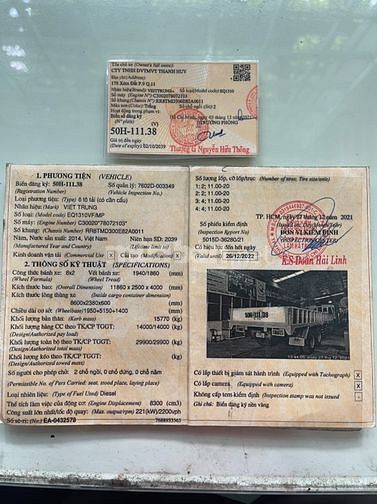 Tên chủ xe (Owner's full name):
CTY TNHH DVTMVT THANH HUY
Địa chỉ (Address):
Nhãn hiệu(Brand): VIETTRUNG Số loại(Model code): EQ1310
Số máy (Engine Nº): C30020278072103
Số khung (Chassis Nº): RR8TMD300E82A0011
Màu sơn (Color): Trắng
Biển số đăng ký
(Nº plate)
50H-111.38
Giá trị đến ngày
(Date of expiry) 02/10/2039
Thượng tá Nguyễn Hữu Thông
1. PHƯƠNG TIỆN (VEHICLE)
Biển đăng ký: 50H-111.38 Số quản lý: 7602D-003349
(Registration Number) (Vehicle Inspection No.)
Loại phương tiện: (Type) ô tô tải (có cần cẩu)
Nhãn hiệu: (Mark) VIET TRUNG
Số loại: (Model code) EQ1310VF/MP
Số máy: (Engine Number) C30020278072103*
Số khung: (Chassis Number) RR8TMD300E82A0011
Năm, Nước sản xuất: 2014, Việt Nam Niên hạn SD: 2039
(Manufactured Year and Country) (Lifetime limit to)
Kinh doanh vận tải (Commercial Use) X Cải tạo (Modification) X
2. THÔNG SỐ KỸ THUẬT (SPECIFICATIONS)
Công thức bánh xe: 8x2 Vết bánh xe: 1940/1860 (mm)
(Wheel Formula) (Wheel Tread)
Kích thước bao: (Overall Dimension) 11860 x 2500 x 4000 (mm)
Kích thước lòng thùng xe (mm)
(Inside cargo container dimension)
8600x2360x600
Chiều dài cơ sở: (Wheelbase) 1950+5150+1400 (mm)
Khối lượng bản thân: (Kerb mass) 15770 (kg)
Khối lượng hàng CC theo TK/CP TGGT: 14000/14000 (kg)
(Design/Authorized pay load)
Khối lượng toàn bộ theo TK/CP TGGT: 29900/29900 (kg)
(Design/Authorized total mass)
Khối lượng kéo theo TK/CP TGGT: (kg)
(Design/Authorized towed mass)
Số người cho phép chở: 2 chỗ ngồi, 0 chỗ đứng, 0 chỗ nằm
(Permissible No. of Pers Carried: seat, stood place, laying place)
Loại nhiên liệu: (Type of Fuel Used) Diesel
Thể tích làm việc của động cơ: (Engine Displacement) 8300 (cm3)
Công suất lớn nhất/tốc độ quay: (Max. output/rpm) 221(kW)/2200vph
Số sê-ri: (No.) EA-0432579
Số lượng lốp, cỡ lốp/trục (Number of tires; Tire size/axle)
1: 2; 11.00-20
2: 2; 11.00-20
3: 4; 11.00-20
4: 4; 11.00-20
Số phiếu kiểm định
(Inspection Report No)
5015D-26280/21
Có hiệu lực đến hết ngày
(Valid until) 26/12/2022
TP. HCM, ngày 27 tháng 12 năm 2021
ĐƠN VỊ KIỂM ĐỊNH
K.S Đoàn Hải Linh
Có thiết bị giám sát hành trình (Equipped with Tachograph) X
Có lắp camera (Equipped with camera) X
Không cấp tem kiểm định (Inspection stamp was not issued)
Ghi chú: Biển đăng ký nền vàng